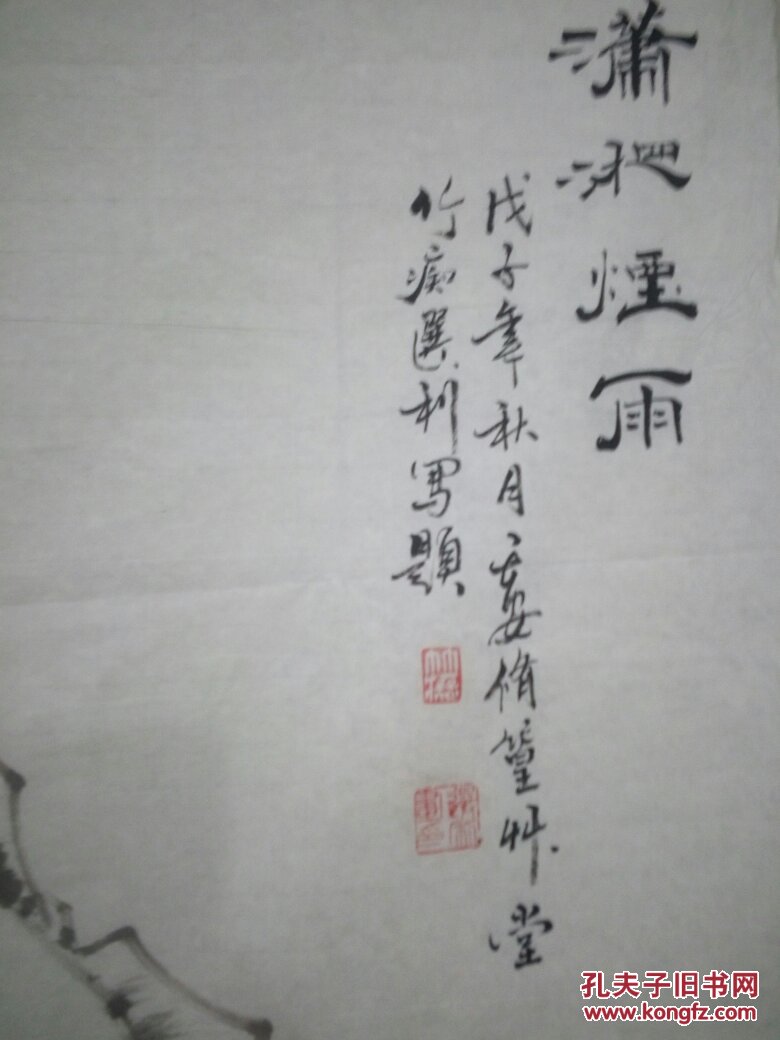 瀟湘煙雨
戊子年秋月於修篁艸堂
竹痴選利寫題
孔夫子旧书网
www.kongfz.com